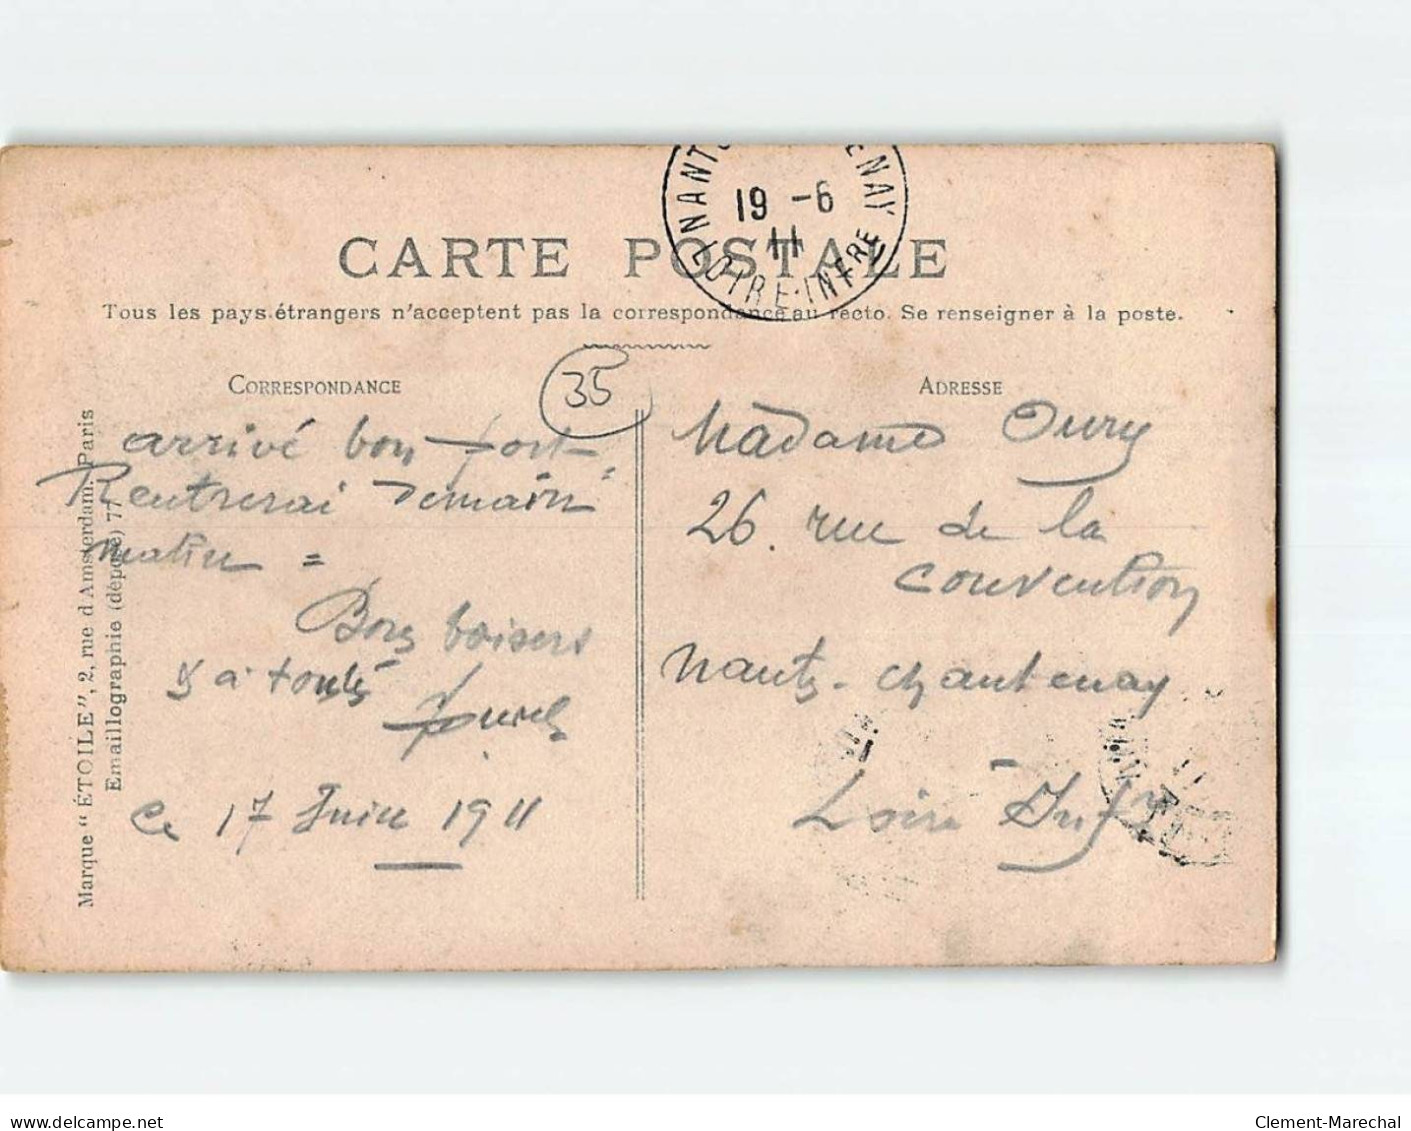 NANTES CHANTENAY
19 -6
11
LOIRE-INFRE
CARTE POSTALE
Tous les pays étrangers n'acceptent pas la correspondance au recto. Se renseigner à la poste.
CORRESPONDANCE
35
ADRESSE
arrivé bon port =
Rentrerai demain
matin =
Bons baisers
à toutes
ce 17 Juin 1911
Madame Oury
26. rue de la
Convention
Nantes - Chantenay
Loire Infre
Marque "ÉTOILE", 2, rue d'Amsterdam. Paris
Emaillographie (déposé) 77
www.delcampe.net
Clement-Marechal